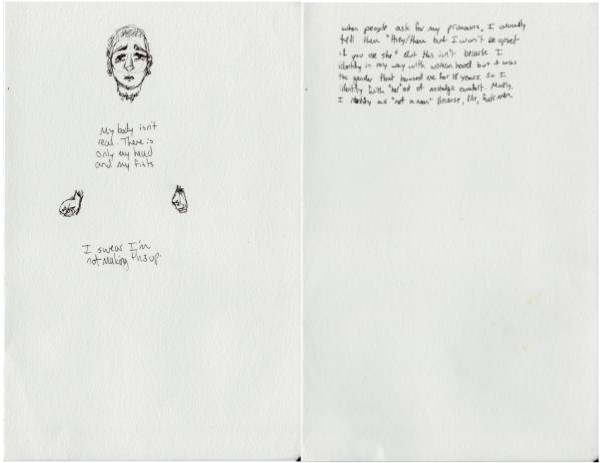 My body isn't
real. There is
only my head
and my fists
I swear I'm
not making this up.
when people ask for my pronouns, I usually
tell them "they/them but I won't be upset
if you use she" But this isn't because I
identify in any way with womanhood but it was
the gender that housed me for 18 years. So I
identify with "her" out of nostalgic comfort. Mostly,
I identify as "not a man" Because, like, fuck men